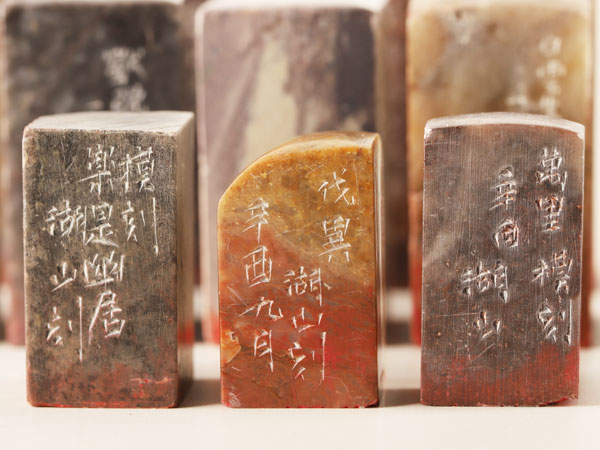 模刻
楽是幽居
湖山刻
伐異
湖山刻
辛酉九月
萬里模刻
辛酉
湖山